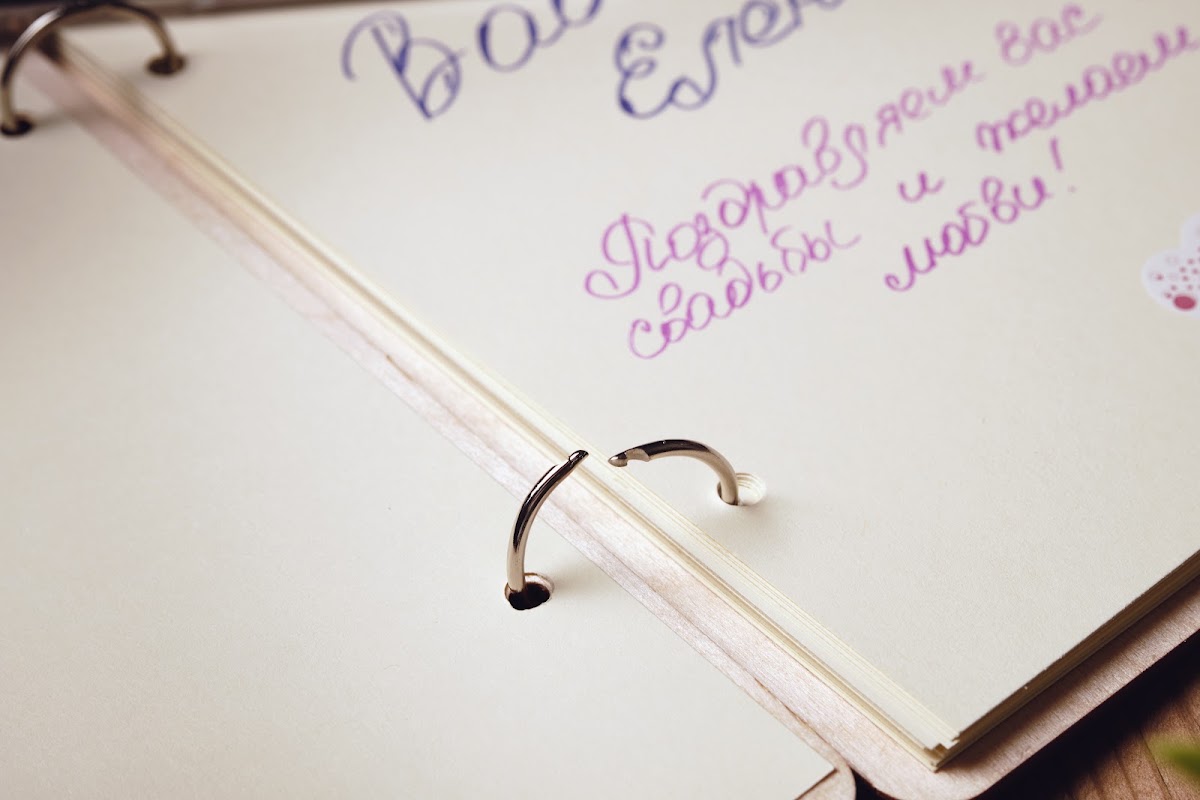 Поздравляем вас
свадьбы и желаем
любви!